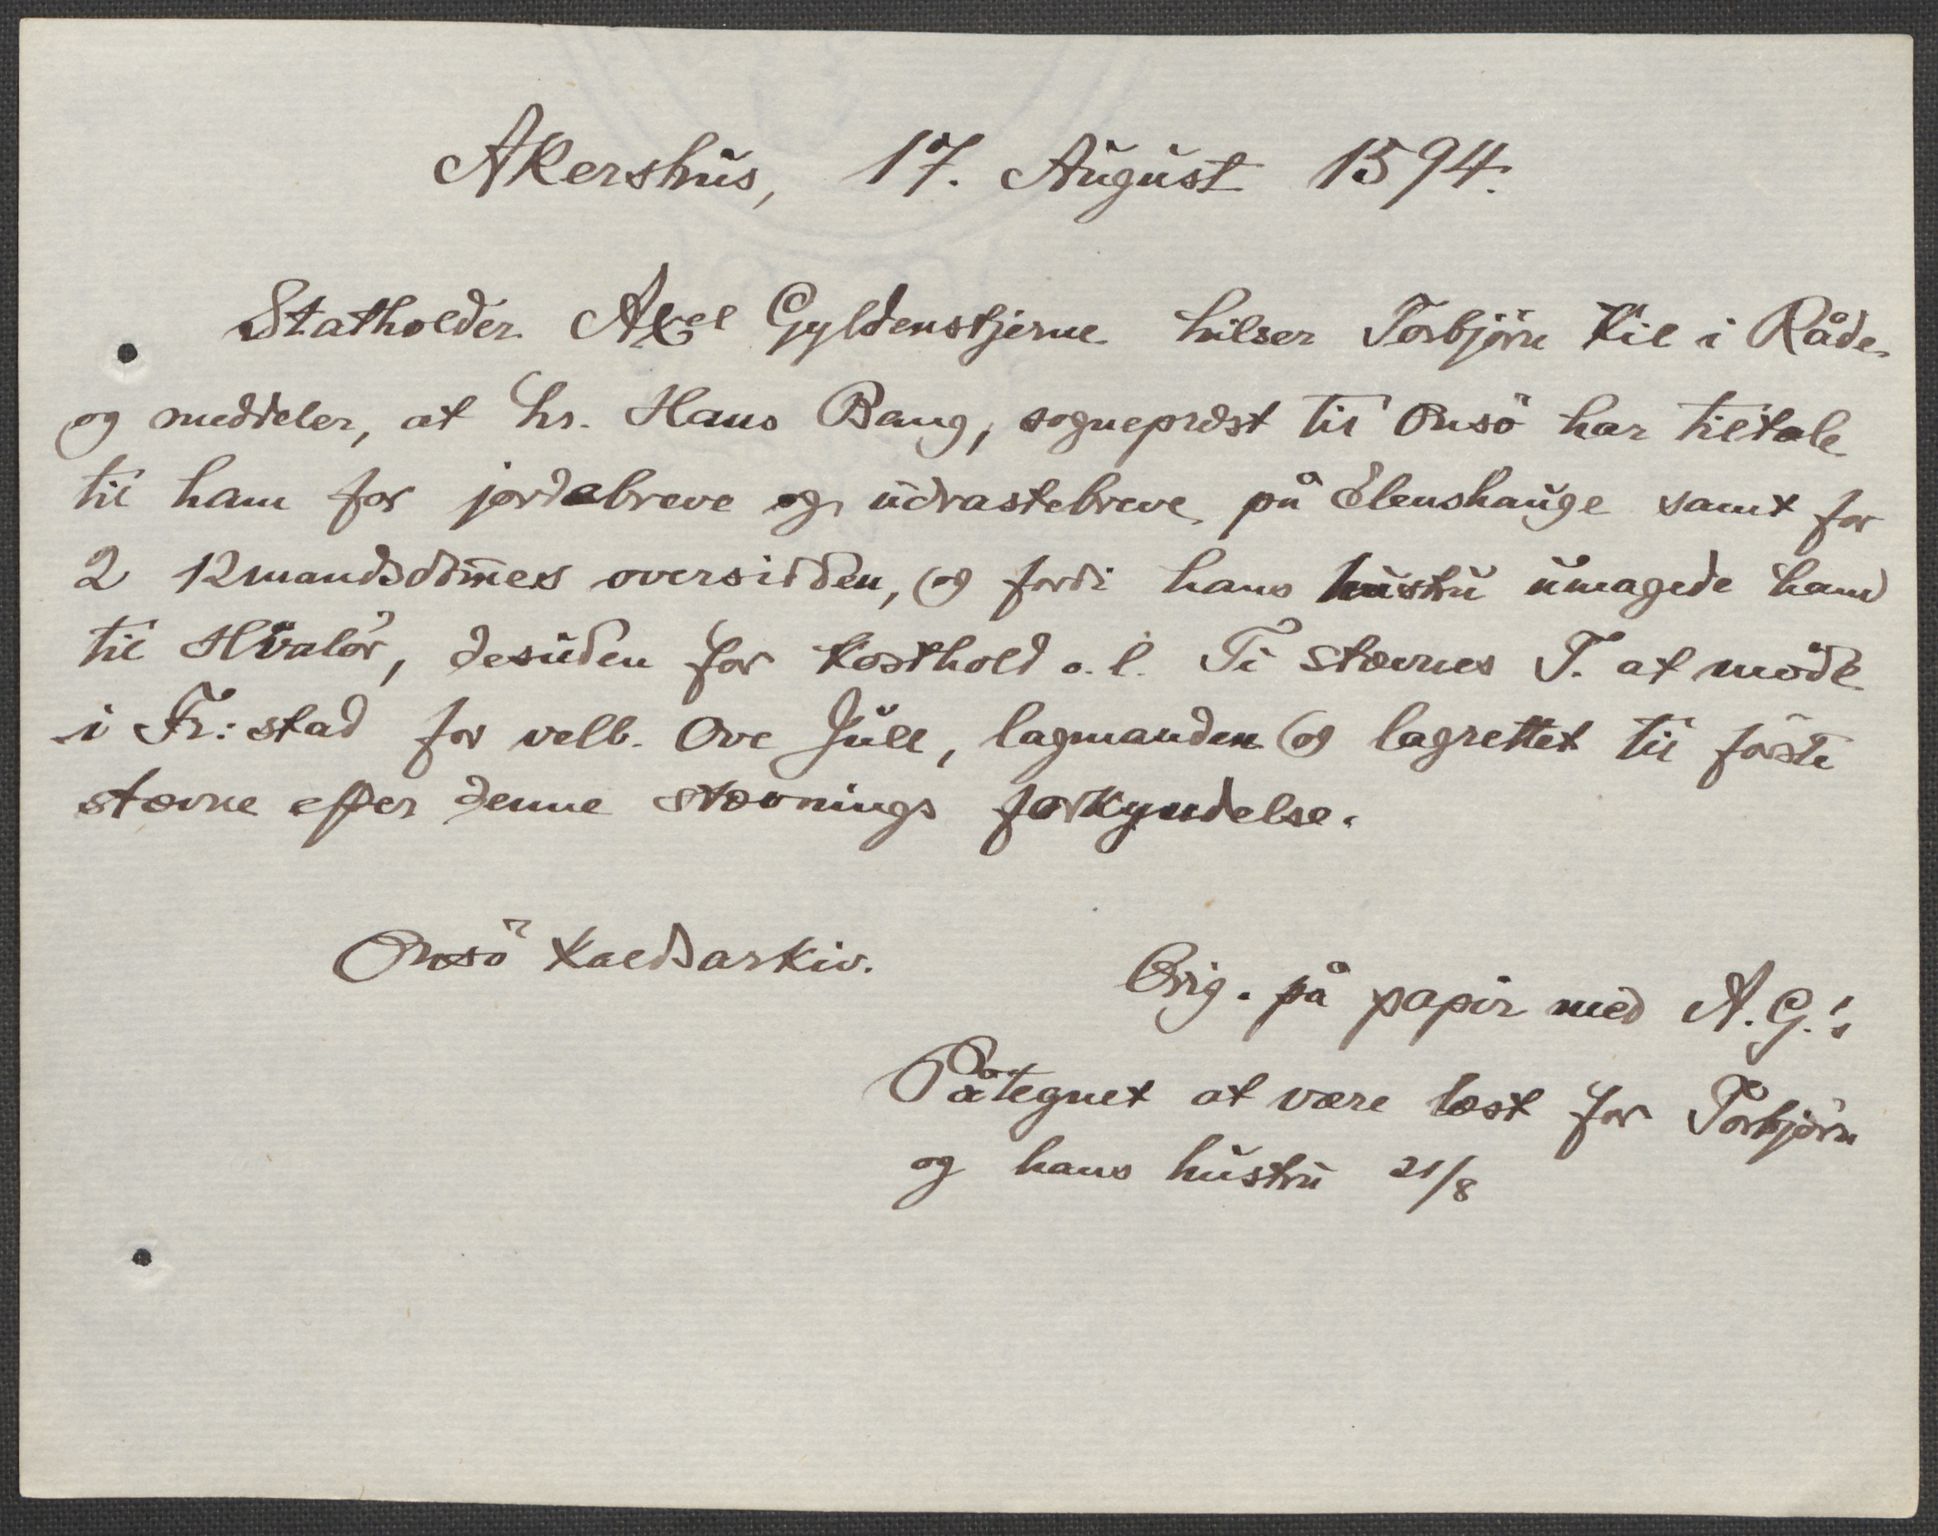 Akershus, 17. August 1594.
Statholder Axel Gyldenstjerne hilser Torbjörn Kil i Råde
og meddeler, at hr. Hans Bang, sogneprest til Onsö har tiltale
til ham for jordebreve og udrastebreve på Elenshauge samt for
2 12mandsdom̄es oversidden, og fordi hans hustru umagede ham
til Hvalör, desuden for kosthold o. l. Ti stævnes T. at möde
i Fr: stad for velb. Ove Juel, lagmanden og lagrettet til förste
stævne efter denne stævnings forkyndelse.
Onsö kaldsarkiv.
Orig. på papir med A. G.'s
Påtegnet at være læst for Torbjörn
og hans hustru 21/8